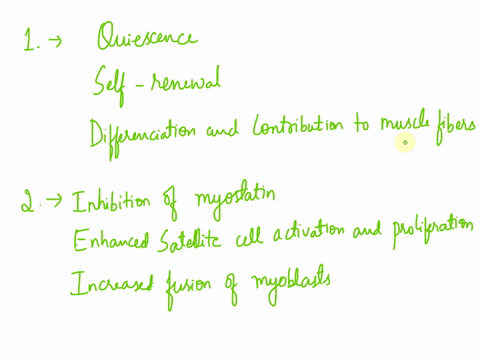 1. → Quiescence
Self - renewal
Differenciation and Contribution to muscle fibers
2. → Inhibition of myostatin
Enhanced Satellite cell activation and proliferation
Increased fusion of myoblasts